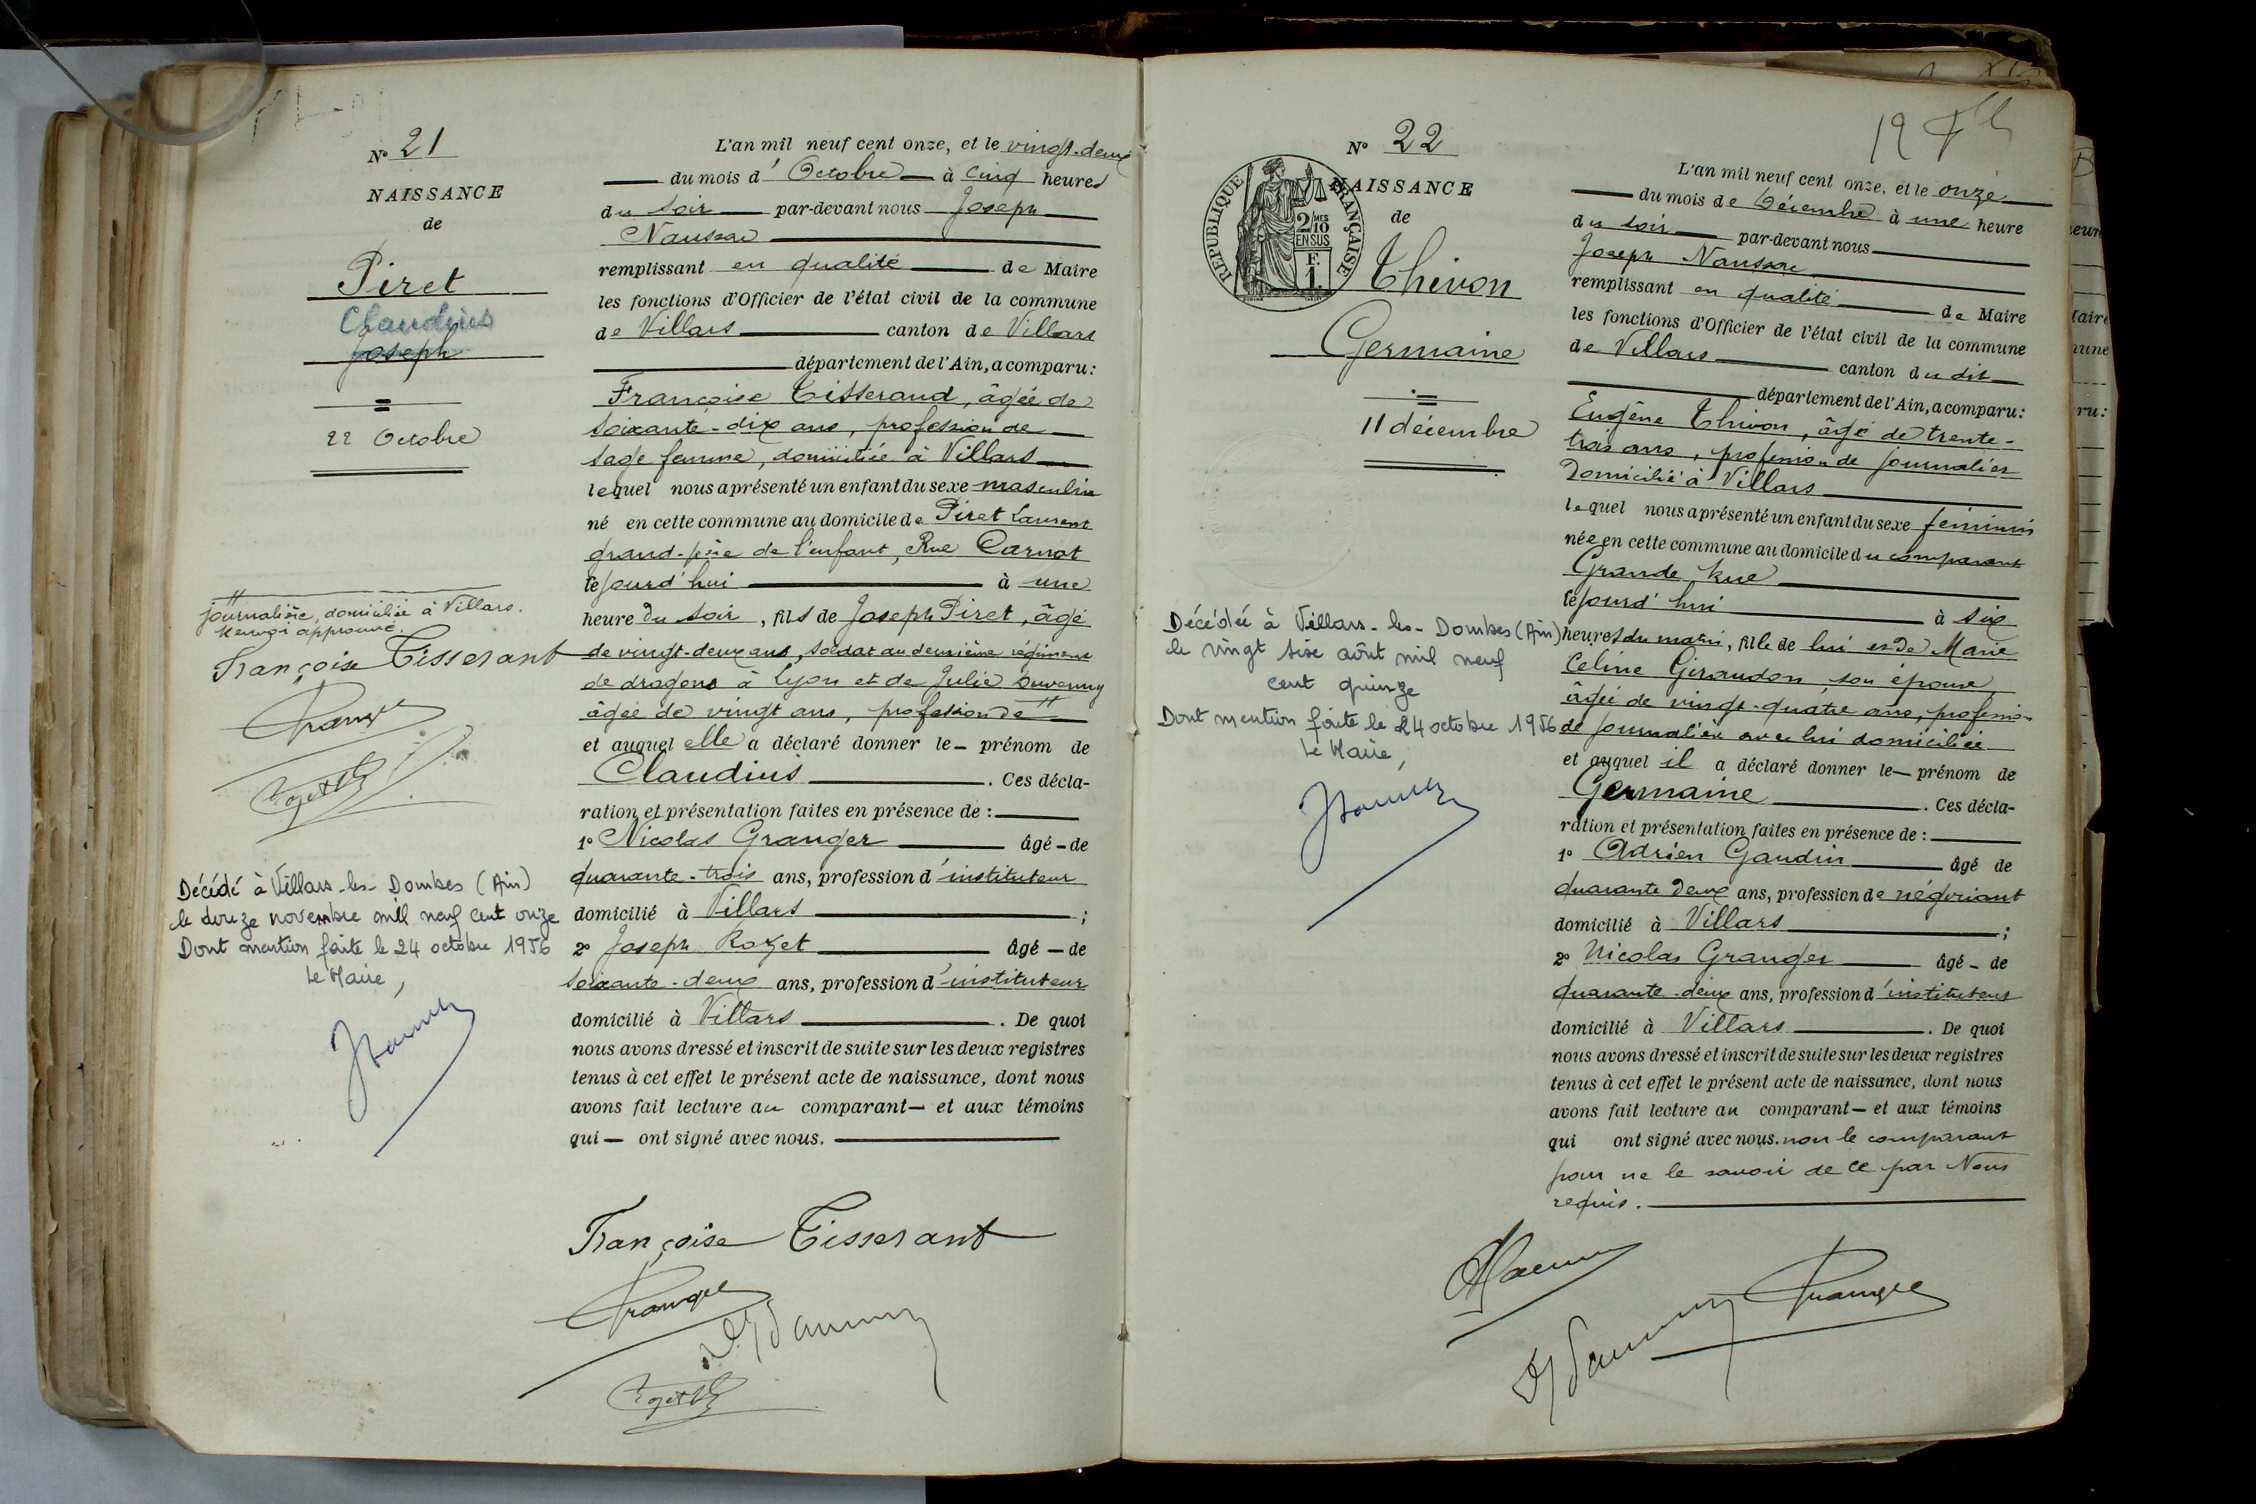 N° 21
NAISSANCE
de
Piret
Claudius
Joseph
22 Octobre
journalière, domiciliée à Villars.
Renvoi approuvé.
Françoise Tisserant
Décédé à Villars-les-Dombes (Ain)
le douze novembre mil neuf cent onze
Dont mention faite le 24 octobre 1956
Le Maire,
L'an mil neuf cent onze, et le vingt-deux
du mois d'Octobre à cinq heures
du soir par-devant nous Joseph
remplissant en qualité de Maire
les fonctions d'Officier de l'état civil de la commune
de Villars canton de Villars
département de l'Ain, a comparu:
Françoise Tisserand, âgée de
soixante-dix ans, profession de
sage femme, domiciliée à Villars
lequel nous a présenté un enfant du sexe masculin
né en cette commune au domicile de Piret Laurent
grand-père de l'enfant, Rue Carnot
cejourd'hui à une
heure du soir, fils de Joseph Piret, âgé
de vingt-deux ans, soldat au deuxième régiment
de dragons à Lyon et de Julie
âgée de vingt ans, profession de
et auquel elle a déclaré donner le prénom de
Claudius. Ces décla-
ration et présentation faites en présence de :
1° Nicolas Granger âgé de
quarante-trois ans, profession d'instituteur
domicilié à Villars ;
2° Joseph Rozet âgé de
soixante-deux ans, profession d'instituteur
domicilié à Villars. De quoi
nous avons dressé et inscrit de suite sur les deux registres
tenus à cet effet le présent acte de naissance, dont nous
avons fait lecture au comparant et aux témoins
qui ont signé avec nous.
Françoise Tisserant
N° 22
NAISSANCE
de
Thivon
Germaine
11 décembre
RÉPUBLIQUE FRANÇAISE
2/10 MES
EN SUS
F.
1.
Décédée à Villars-les-Dombes (Ain)
le vingt six août mil neuf
cent quinze
Dont mention faite le 24 octobre 1956
Le Maire,
L'an mil neuf cent onze, et le onze
du mois de Décembre à une heure
du soir par-devant nous
Joseph
remplissant en qualité de Maire
les fonctions d'Officier de l'état civil de la commune
de Villars canton du dit
département de l'Ain, a comparu:
Eugène Thivon, âgé de trente-
trois ans, profession de journalier
Domicilié à Villars
lequel nous a présenté un enfant du sexe féminin
née en cette commune au domicile du comparant
Grande Rue
cejourd'hui à six
heures du matin, fille de lui et de Marie
Céline Giraudon son épouse,
âgée de vingt-quatre ans, profession
de journalière avec lui domiciliée
et auquel il a déclaré donner le prénom de
Germaine. Ces décla-
ration et présentation faites en présence de :
1° Adrien Gaudin âgé de
quarante deux ans, profession de négociant
domicilié à Villars ;
2° Nicolas Granger âgé de
quarante-deux ans, profession d'instituteur
domicilié à Villars. De quoi
nous avons dressé et inscrit de suite sur les deux registres
tenus à cet effet le présent acte de naissance, dont nous
avons fait lecture au comparant et aux témoins
qui ont signé avec nous. non le comparant
pour ne le savoir de ce par Nous
requis.